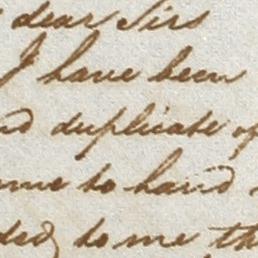 dear Sirs
I have been
nd duplicate of
me to hand
ded to me th